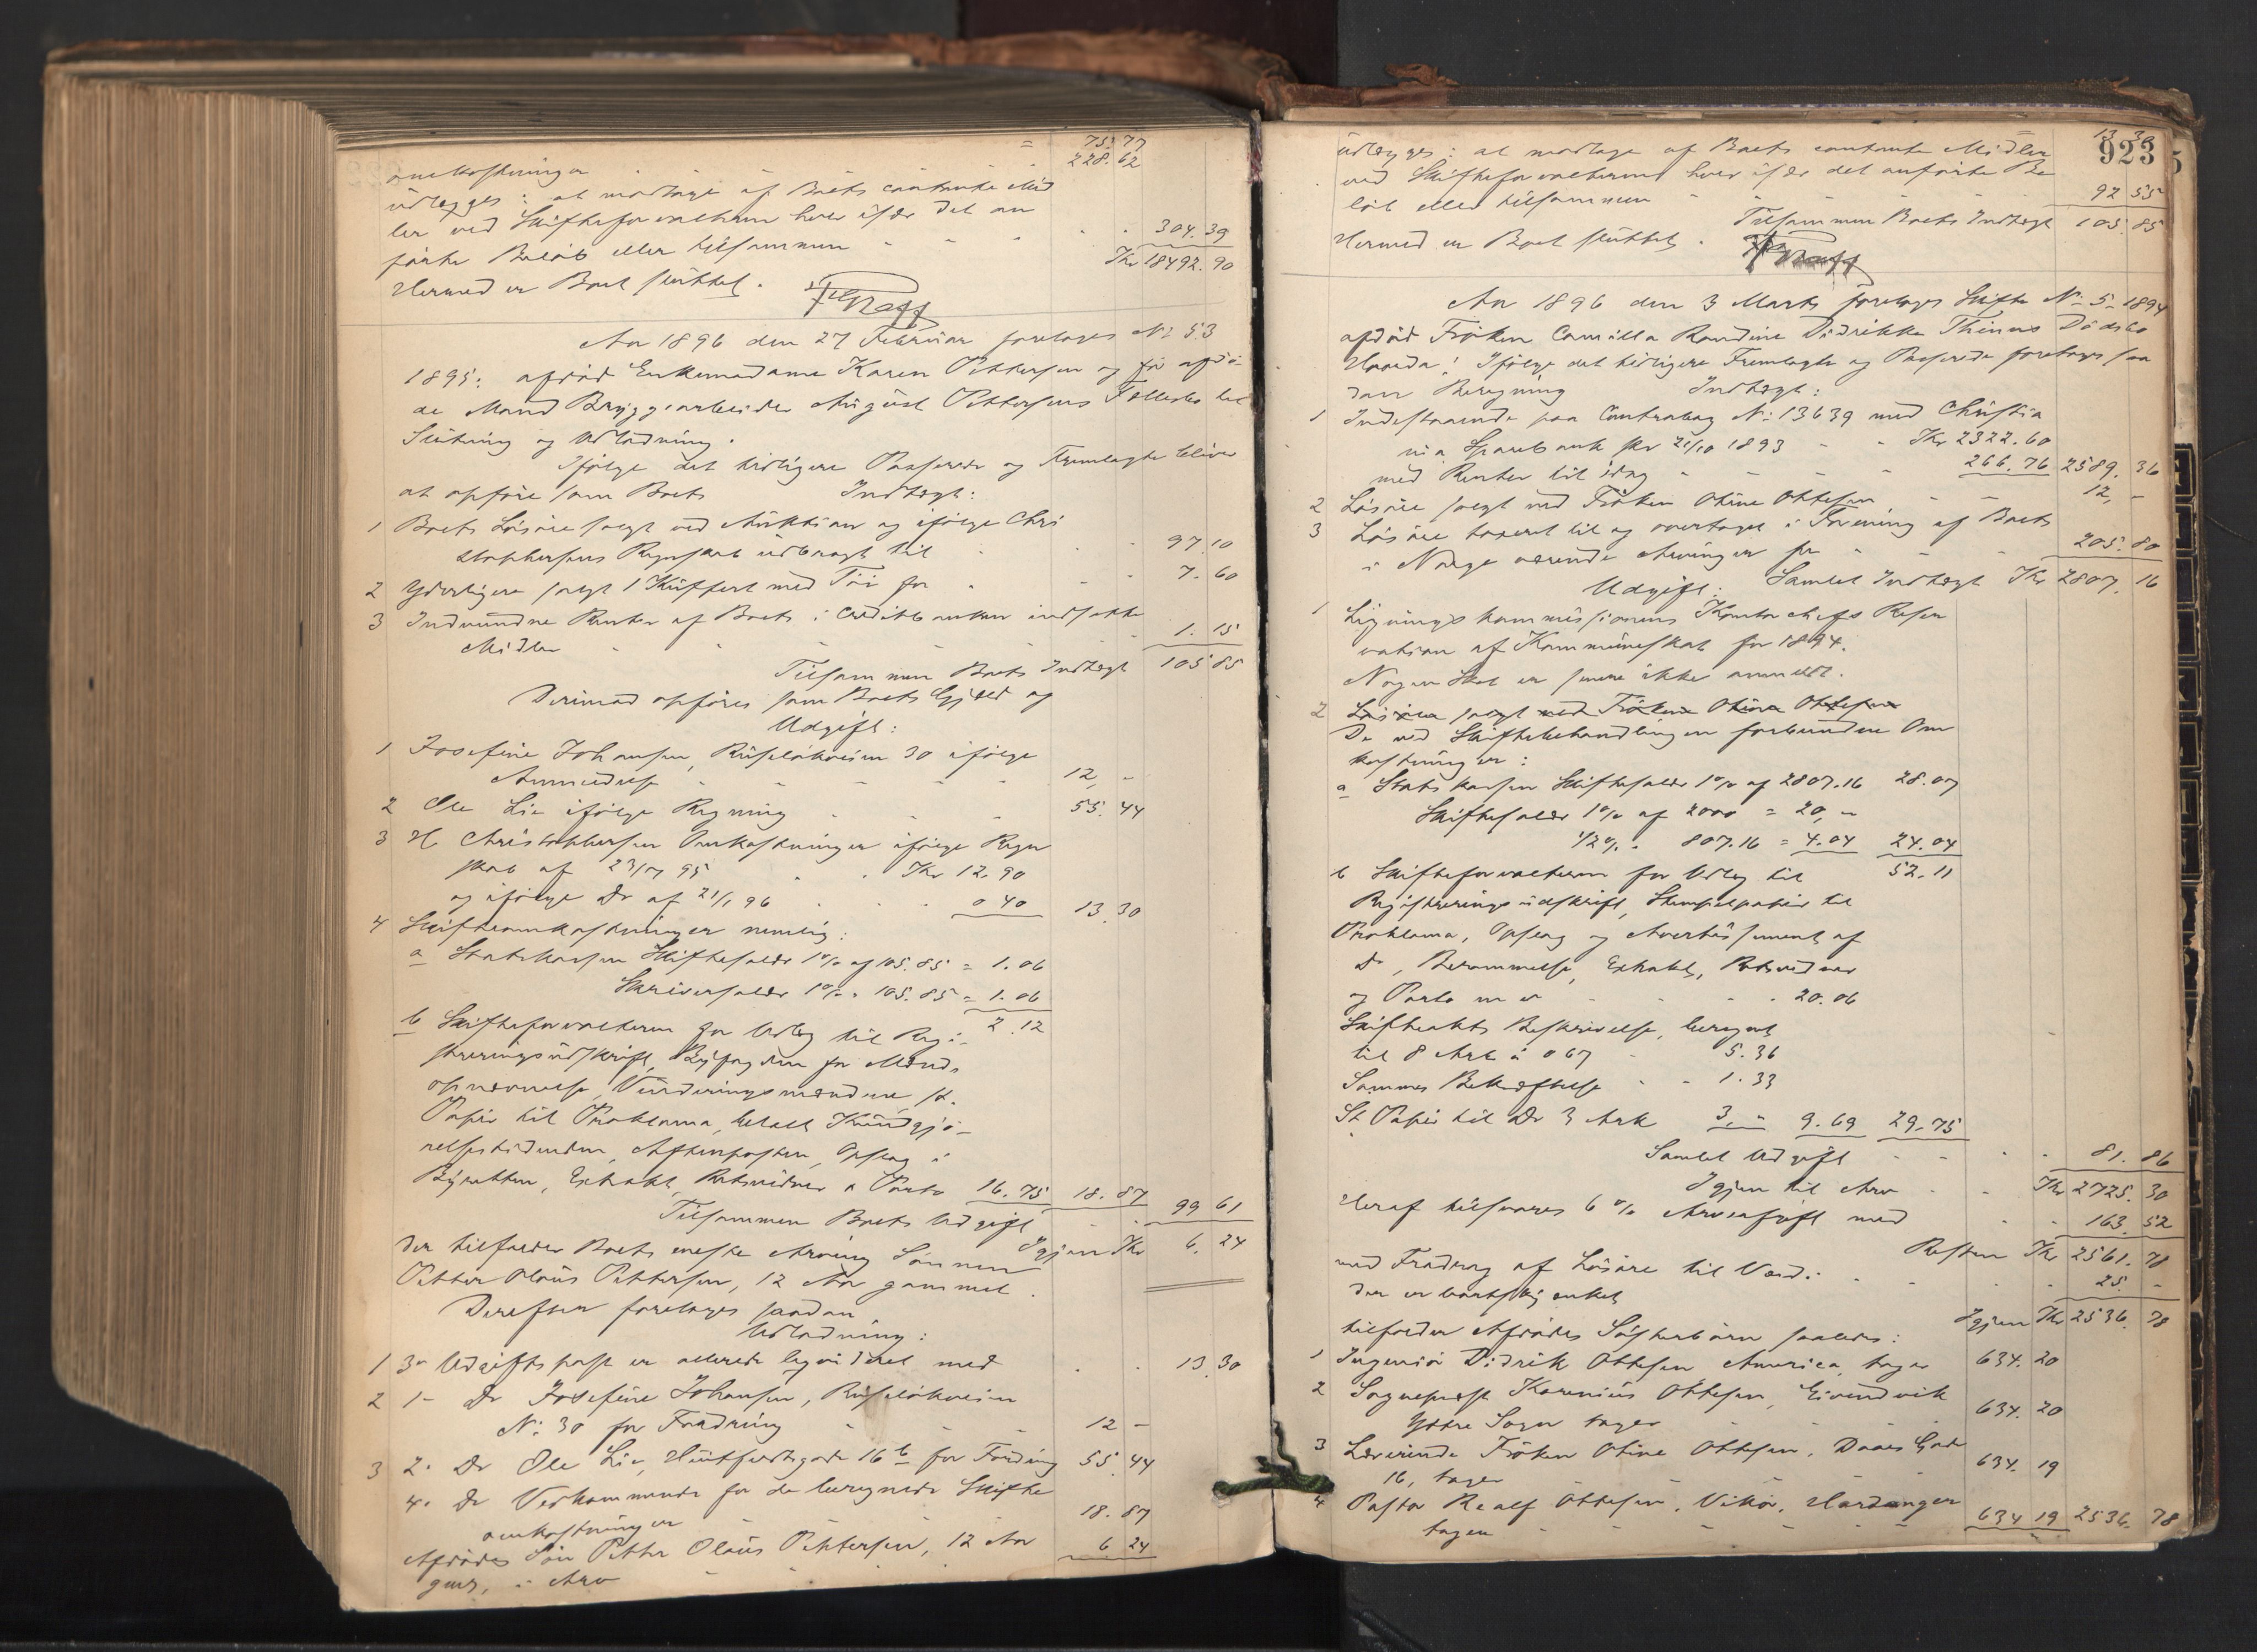 = 75.77
omkostninger 228.62
udlægges: at modtage af Boets contante Mid
ler ved Skifteforvalteren hver især det an
førte Beløb eller tilsammen 304.39
Hermed er Boet sluttet. Kr 18492.90
Aar 1896 den 27 Februar foretoges No 53
1895: afdød Enkemadame Karen Pettersen og før afdø-
de Mand Bryggearbeider August Pettersens Fællesbo til
Slutning og Udlodning.
Ifølge det tidligere Passerede og Fremlagte bliver
at opføre som Boets Indtægt:
1 Boets Løsøre solgt ved Auktion og ifølge Chri
stophersens Regnskab udbragt til 97.10
2 Yderligere solgt 1 Kuffert med Tøi for 7.60
3 Indvundne Renter af Boets i Creditbanken indsatte
Midler 1.15
Tilsammen Boets Indtægt 105 85
Derimod opføres som Boets Gjæld og
Udgift:
1 Josefine Johansen, Ruseløkveien 30 ifølge
Anmeldelse 12, -
2 Ole Lie ifølge Regning 55.44
3 H. Christophersen Omkostninger ifølge Regn
skab af 23/7 95 Kr 12.90
og ifølge Do af 21/1 96 0 40 13.30
4 Skifteomkostninger nemlig:
a Statskassen Skiftesalær 1% af 105.85 = 1.06
Skriversalær 1% " 105.85 = 1.06
2.12
b Skifteforvalteren for Udlæg til Regi-
streringsudskrift, Byfogden for Mænds
opnævnelse, Vurderingsmændene, St.
Papir til Proklama, betalt Kundgjø-
relsestidenden, Aftenposten, Opslag i
Byretten, Extrakt, Retsvidner & Porto 16.75 18.87
Tilsammen Boets Udgift 99 61
Igjen Kr 6.24
der tilfalder Boets eneste Arving Sønnen
Petter Olaus Pettersen, 12 Aar gammel.
Derefter foretoges saadan
Udlodning:
1 3' Udgiftspost er allerede liqvideret med 13.30
2 1- Do Josefine Johansen, Ruseløkveien
No 30 for Fordring 12 -
3 2. Do Ole Lie, Huitfeldtsgade 16 b for Fordring 55.44
4. Do Vedkommende for de beregnede Skifte
omkostninger 18.87
Afdødes Søn Petter Olaus Pettersen, 12 Aar
gml, i Arv 6 24
923
= 13 30
udlægges: at modtage af Boets contante Midler
ved Skifteforvalteren hver især det anførte Be
løb eller tilsammen 92 55
Tilsammen Boets Indtægt 105.85
Hermed er Boet sluttet.
Aar 1896 den 3 Marts foretoges Skifte No 5 - 1894
afdød Frøken Camilla Randine Didrikke Dødsbo
Ifølge det tidligere Fremlagte og Passerede foretoges saa
dan Beregning Indtægt:
1 Indestaaende paa Contrabog No 13639 med Christia
nia Sparebank pr 21/10 1893 Kr 2322.60
med Renter til idag 266.76 2589.36
2 Løsøre solgt ved Frøken Otine Ottesen 12, -
3 Løsøre taxeret til og overtaget i Forening af Boets
i Norge værende Arvinger for 205.80
Udgift: Samlet Indtægt Kr 2807.16
1 Ligningskommissionens Kontorchefs Reser
vation af Kommuneskat for 1894.
Nogen Skat er senere ikke anmeldt.
2 Løsøre solgt ved Frøken Otine Ottesen
De ved Skiftebehandlingen forbundne Om
kostninger:
a Statskassen Skiftesalær 1% af 2807.16 28.07
Skiftesalær 1% af 2000 = 20, -
1/2% " 807.16 = 4.04 24.04
b Skifteforvalteren for Udlæg til 52.11
Registreringsudskrift, Stempelpapir til
Proklama, Opslag og Avertissement af
Do, Berammelse, Extrakt, Retsvidner
og Porto m. v. 20.06
Skifteakts Beskrivelse, beregnet
til 8 Ark à 0 67 5.36
Sammes Bekræftelse 1.33
St Papir til Do 3 Ark 3,- 9.69 29.75
Samlet Udgift 81.86
Igjen til Arv Kr 2725.30
Heraf tilsvares 6% Arveafgift med 163.52
Resten Kr 2561.78
med Fradrag af Løsøre til Værd: 25. -
der er bortskjænket
Igjen Kr 2536.78
tilfalder Afdødes Søsterbørn saaledes:
1 Ingeniør Didrik Ottesen America, tager 634.20
2 Sogneprest Karenius Ottesen, Eivindvik
Yttre Sogn tager 634.20
3 Lærerinde Frøken Otine Ottesen, Daaes Gade
16, tager 634.19
4 Pastor Realf Ottesen, Vikør, Hardanger
tager 634 19 2536.78